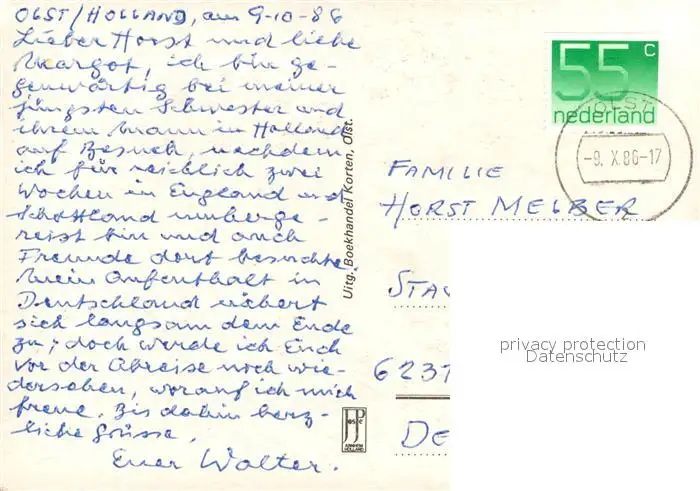 OLST/HOLLAND, am 9-10-86
Lieber Horst und liebe
Margot, ich bin ge-
genwärtig bei meiner
jüngsten Schwester und
ihrem Mann in Holland
auf Besuch, nachdem
ich für reichlich zwei
Wochen in England und
Schottland umherge-
reist bin und auch
Freunde dort besuchte.
Mein Aufenthalt in
Deutschland nähert
sich langsam dem Ende
zu; doch werde ich Euch
vor der Abreise noch wie-
dersehen, worauf ich mich
freue. Bis dahin herz-
liche Grüsse,
Euer Walter.
Uitg. Boekhandel Korten, Olst.
JosPé
ARNHEM
HOLLAND
55 c
nederland
OLST
-9.X.86-17
FAMILIE
HORST MELBER
STAU
6231
DE
privacy protection
Datenschutz